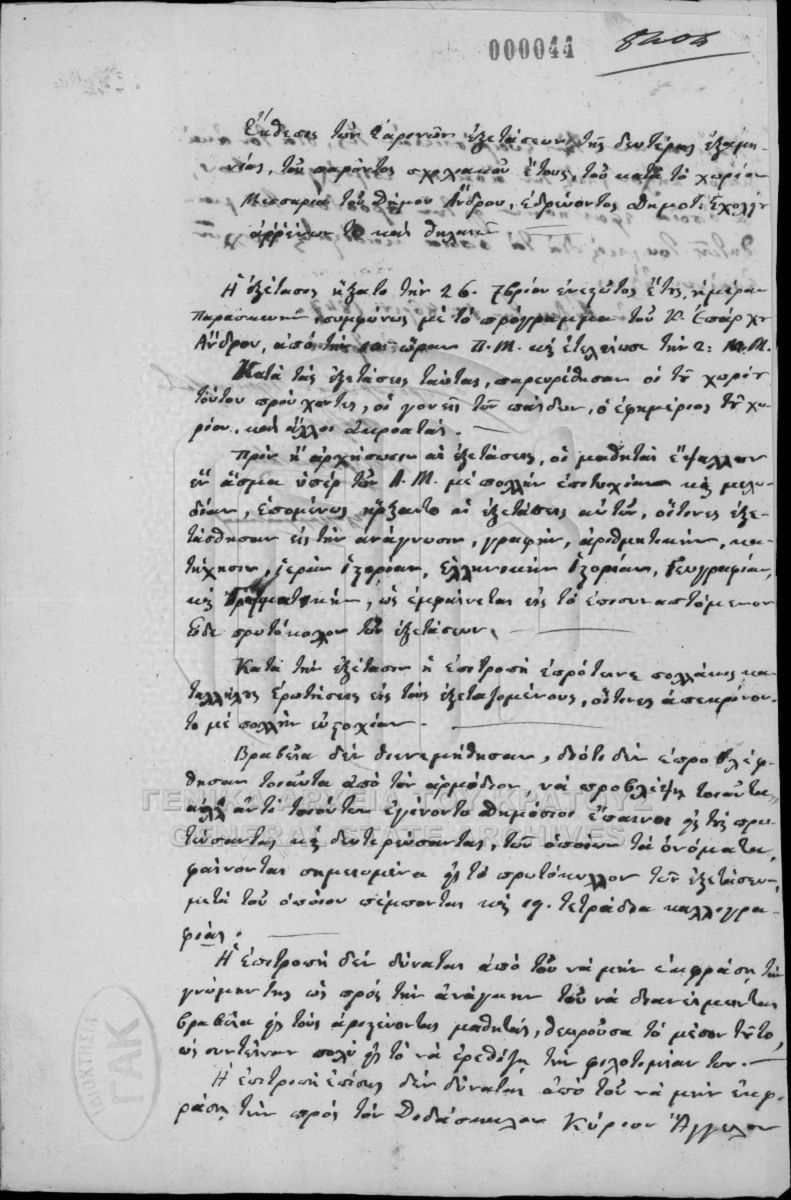 000044
Ἔκθεσις τῶν ἐαρινῶν ἐξετάσεων τῆς δευτέρας ἑξαμη-
νίας, τοῦ παρόντος σχολιακοῦ ἔτους, τοῦ κατὰ τὸ χωρίον
Μεσσαριὰ τοῦ Δήμου Ἄνδρου, ἑδρεύοντος Δημοτ: Σχολείου
ἀῤῥένων τε καὶ θηλέων
Ἡ ἐξέτασις ἤρξατο τὴν 26. 7βρίου ἐνεστῶτος ἔτους, ἡμέραν
Παρασκευὴν, συμφώνως μὲ τὸ πρόγραμμα τοῦ Κ. Ἐπάρχου
Ἄνδρου, ἀπὸ τὴν ὥραν Π.Μ. καὶ ἐτελείωσε τὴν 2: Μ.Μ.
Κατὰ τὰς ἐξετάσεις ταύτας, παρευρέθησαν οἱ τοῦ χωρίου
τούτου προὔχοντες, οἱ γονεῖς τῶν παίδων, ὁ ἐφημέριος τοῦ χω-
ρίου, καὶ ἄλλοι ἀκροαταί. —
Πρὶν ἢ ἀρχήσωσιν αἱ ἐξετάσεις, οἱ μαθηταὶ ἔψαλλον
ἓν ᾆσμα ὑπὲρ τῶν Α.Μ. μὲ πολλὴν ἐπιτυχίαν καὶ μελω-
δίαν, ἑπομένως ἤρξαντο αἱ ἐξετάσεις αὐτῶν, οἵτινες ἐξε-
τάσθησαν εἰς τὴν ἀνάγνωσιν, γραφὴν, ἀριθμητικὴν, κα-
τήχησιν, ἱερὰν ἱστορίαν, ἑλληνικὴν ἱστορίαν, Γεωγραφίαν,
καὶ Γραμματικὴν, ὡς ἐμφαίνεται εἰς τὸ ἐπισυναπτόμενον
ὧδε πρωτόκολλον τῶν ἐξετάσεων. —
Κατὰ τὴν ἐξέτασιν ἡ ἐπιτροπὴ ἐπρότεινε πολλάκις κα-
ταλλήλους ἐρωτήσεις εἰς τοὺς ἐξεταζομένους, οἵτινες ἀπεκρίνον-
το μὲ πολλὴν εὐστοχίαν. —
Βραβεῖα δὲν διενεμήθησαν, διότι δὲν ἐπροβλέφ-
θησαν τοιαῦτα ἀπὸ τὸν ἁρμόδιον, νὰ προβλέψῃ τοιαῦτα,
ἀλλ' ἀντὶ τούτων ἐγένοντο δημόσιοι ἔπαινοι εἰς τοὺς πρω-
τεύσαντας καὶ δευτερεύσαντας, τῶν ὁποίων τὰ ὀνόματα,
φαίνονται σημειωμένα εἰς τὸ πρωτόκολλον τῶν ἐξετάσεων,
μετὰ τοῦ ὁποίου πέμπονται καὶ 19. τετράδια καλλιγρα-
φίας. —
Ἡ ἐπιτροπὴ δὲν δύναται ἀπὸ τοῦ νὰ μὴν ἐκφράσῃ τὴν
γνώμην της ὡς πρὸς τὴν ἀνάγκην τοῦ νὰ διανείμωνται
βραβεῖα εἰς τοὺς ἀριστεύοντας μαθητάς, θεωροῦσα τὸ μέσον τοῦτο,
ὡς συντεῖνον πολὺ εἰς τὸ νὰ ἐρεθίζῃ τὴν φιλοτιμίαν των. —
Ἡ ἐπιτροπὴ ἐπίσης δὲν δύναται ἀπὸ τοῦ νὰ μὴν ἐκφ-
ράσῃ τὴν πρὸς τὸν Διδάσκαλον Κύριον Ἄγγελον
ΓΕΝΙΚΑ ΑΡΧΕΙΑ ΤΟΥ ΚΡΑΤΟΥΣ
GENERAL STATE ARCHIVES
ΙΔΙΟΚΤΗΣΙΑ
ΓΑΚ